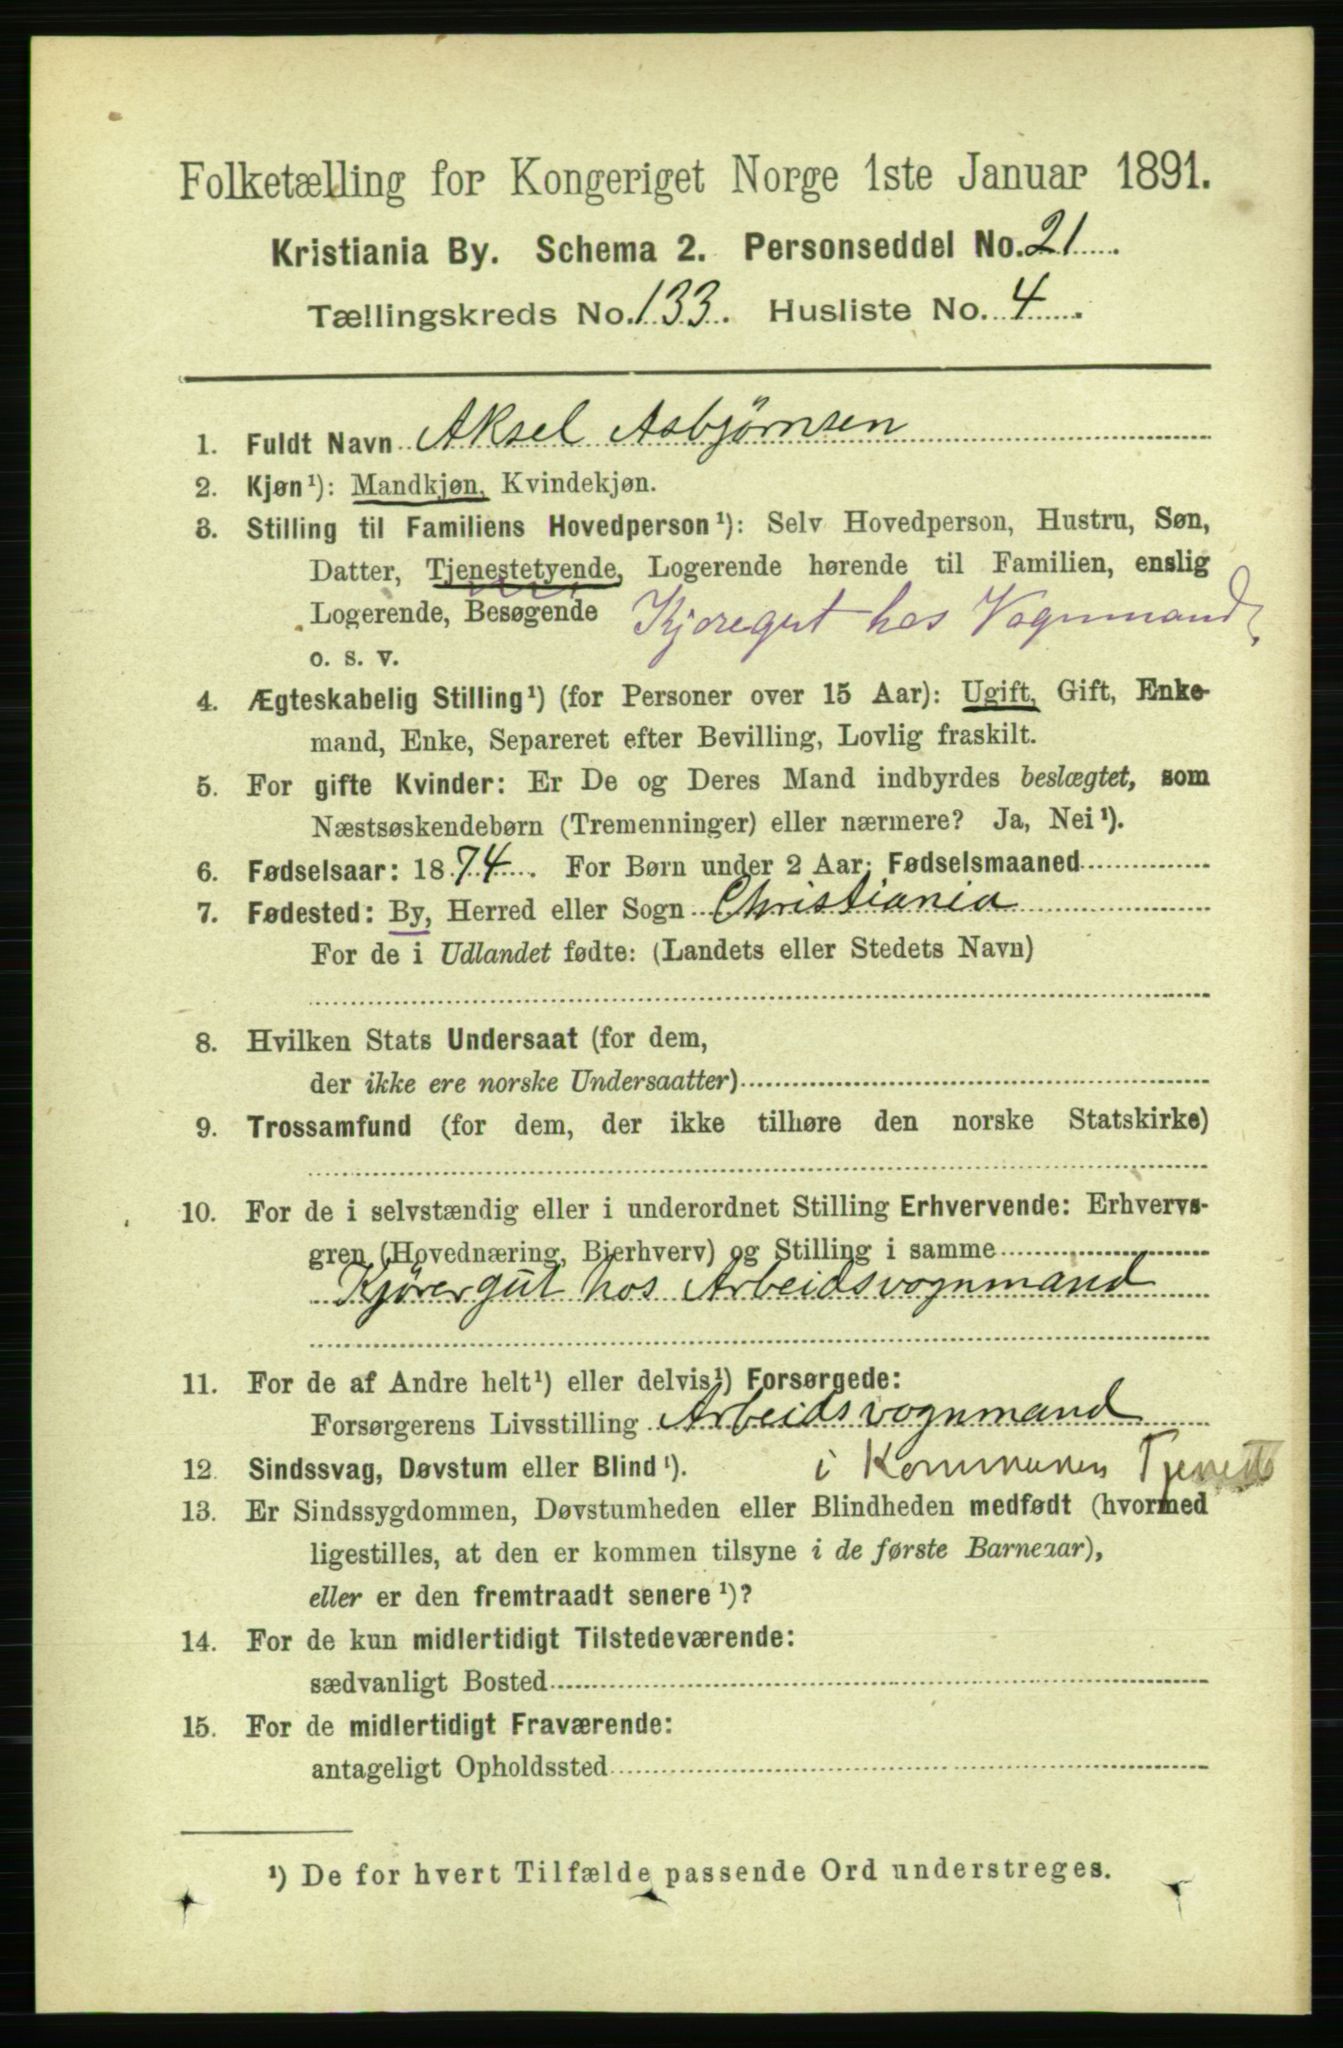 Folketælling for Kongeriget Norge 1ste Januar 1891.
Kristiania By. Schema 2. Personseddel No. 21.
Tællingskreds No. 133. Husliste No. 4.
1. Fuldt Navn Aksel Asbjørnsen
2. Kjøn¹): Mandkjøn, Kvindekjøn.
3. Stilling til Familiens Hovedperson¹): Selv Hovedperson, Hustru, Søn,
Datter, Tjenestetyende, Logerende hørende til Familien, enslig
Logerende, Besøgende Kjøregut hos Vognmand
o. s. v.
4. Ægteskabelig Stilling¹) (for Personer over 15 Aar): Ugift, Gift, Enke-
mand, Enke, Separeret efter Bevilling, Lovlig fraskilt.
5. For gifte Kvinder: Er De og Deres Mand indbyrdes beslægtet, som
Næstsøskendebørn (Tremenninger) eller nærmere? Ja, Nei¹).
6. Fødselsaar: 1874. For Børn under 2 Aar: Fødselsmaaned
7. Fødested: By, Herred eller Sogn Christiania
For de i Udlandet fødte: (Landets eller Stedets Navn)
8. Hvilken Stats Undersaat (for dem,
der ikke ere norske Undersaatter)
9. Trossamfund (for dem, der ikke tilhøre den norske Statskirke)
10. For de i selvstændig eller i underordnet Stilling Erhvervende: Erhvervs-
gren (Hovednæring, Bierhverv) og Stilling i samme
Kjørergut hos Arbeidsvognmand
11. For de af Andre helt¹) eller delvis¹) Forsørgede:
Forsørgerens Livsstilling Arbeidsvognmand
12. Sindssvag, Døvstum eller Blind¹). i Kommunens Tjeneste
13. Er Sindssygdommen, Døvstumheden eller Blindheden medfødt (hvormed
ligestilles, at den er kommen tilsyne i de første Barneaar),
eller er den fremtraadt senere¹)?
14. For de kun midlertidigt Tilstedeværende:
sædvanligt Bosted
15. For de midlertidigt Fraværende:
antageligt Opholdssted
¹) De for hvert Tilfælde passende Ord understreges.